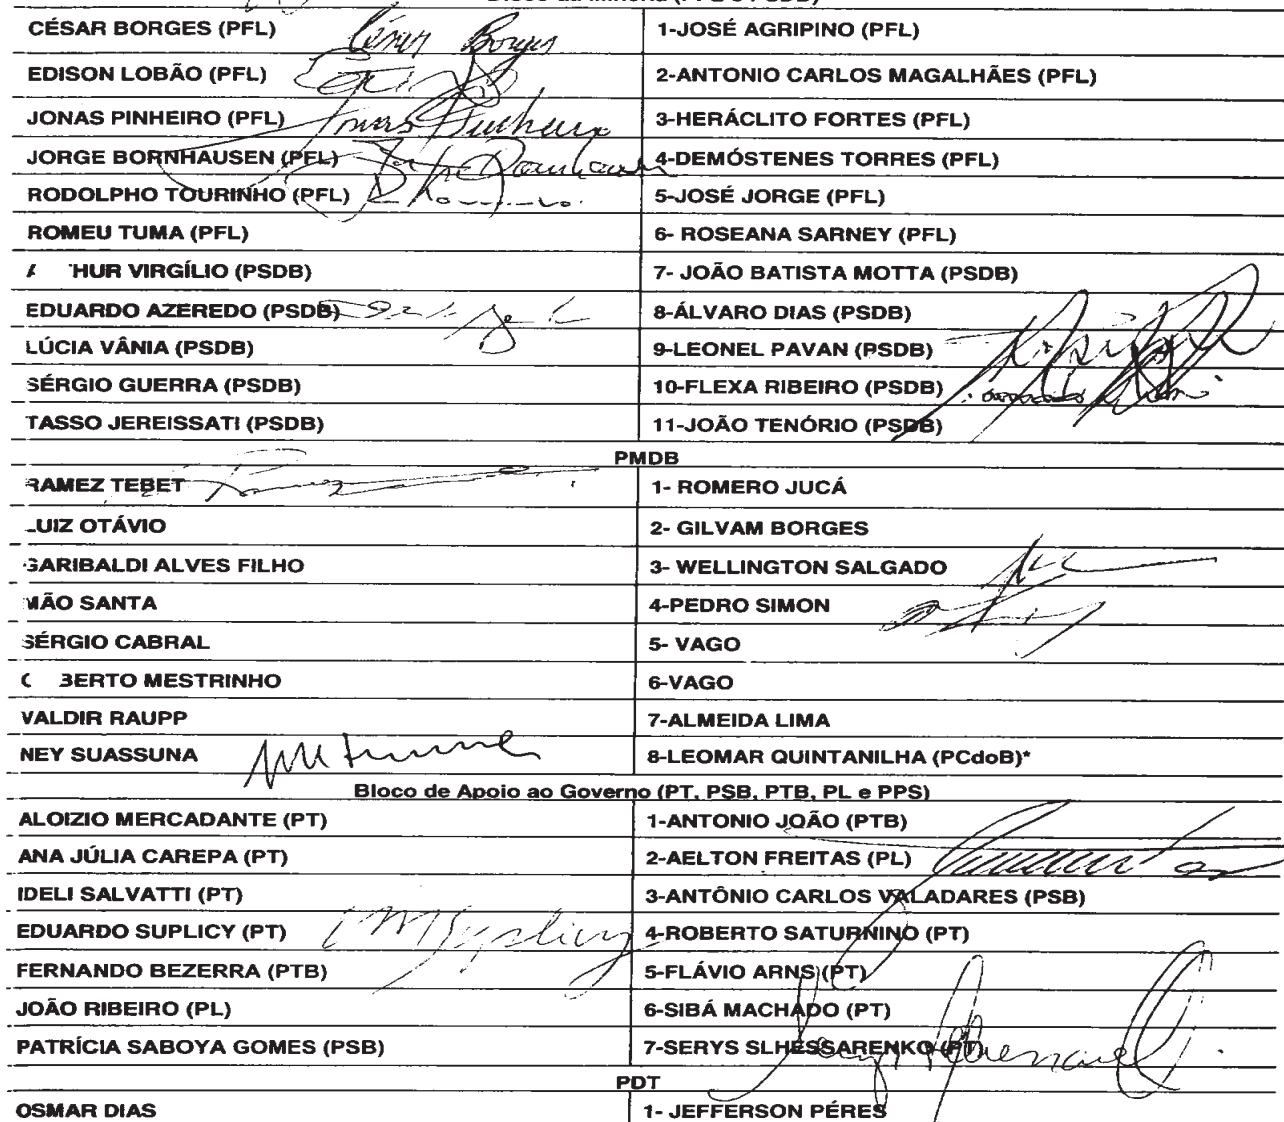 CÉSAR BORGES (PFL) César Borges 1-JOSÉ AGRIPINO (PFL)
EDISON LOBÃO (PFL) 2-ANTONIO CARLOS MAGALHÃES (PFL)
JONAS PINHEIRO (PFL) Jonas Pinheiro 3-HERÁCLITO FORTES (PFL)
JORGE BORNHAUSEN (PFL) 4-DEMÓSTENES TORRES (PFL)
RODOLPHO TOURINHO (PFL) 5-JOSÉ JORGE (PFL)
ROMEU TUMA (PFL) 6- ROSEANA SARNEY (PFL)
HUR VIRGÍLIO (PSDB) 7- JOÃO BATISTA MOTTA (PSDB)
EDUARDO AZEREDO (PSDB) 8-ÁLVARO DIAS (PSDB)
LÚCIA VÂNIA (PSDB) 9-LEONEL PAVAN (PSDB)
SÉRGIO GUERRA (PSDB) 10-FLEXA RIBEIRO (PSDB)
TASSO JEREISSATI (PSDB) 11-JOÃO TENÓRIO (PSDB)
PMDB
RAMEZ TEBET 1- ROMERO JUCÁ
LUIZ OTÁVIO 2- GILVAM BORGES
GARIBALDI ALVES FILHO 3- WELLINGTON SALGADO
MÃO SANTA 4-PEDRO SIMON
SÉRGIO CABRAL 5- VAGO
BERTO MESTRINHO 6-VAGO
VALDIR RAUPP 7-ALMEIDA LIMA
NEY SUASSUNA 8-LEOMAR QUINTANILHA (PCdoB)*
Bloco de Apoio ao Governo (PT, PSB, PTB, PL e PPS)
ALOIZIO MERCADANTE (PT) 1-ANTONIO JOÃO (PTB)
ANA JÚLIA CAREPA (PT) 2-AELTON FREITAS (PL)
IDELI SALVATTI (PT) 3-ANTÔNIO CARLOS VALADARES (PSB)
EDUARDO SUPLICY (PT) 4-ROBERTO SATURNINO (PT)
FERNANDO BEZERRA (PTB) 5-FLÁVIO ARNS (PT)
JOÃO RIBEIRO (PL) 6-SIBÁ MACHADO (PT)
PATRÍCIA SABOYA GOMES (PSB) 7-SERYS SLHESSARENKO (PT)
PDT
OSMAR DIAS 1- JEFFERSON PÉRES